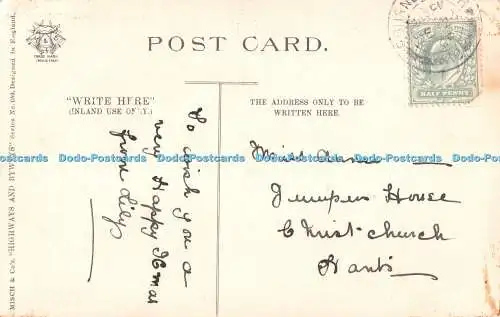 POST CARD.
TRADE MARK
"WRITE HERE"
(INLAND USE ONLY.)
THE ADDRESS ONLY TO BE
WRITTEN HERE.
HALF PENNY
MISCH & Co's. "HIGHWAYS AND BYWAYS" Series No. Designed in England.
To wish you a
very Happy Xmas
from Lily
Miss
Jumpers House
Christchurch
Hants
Dodo-Postcards Dodo-Postcards Dodo-Postcards Dodo-Postcards Dodo-Postcards Dodo-Postcards